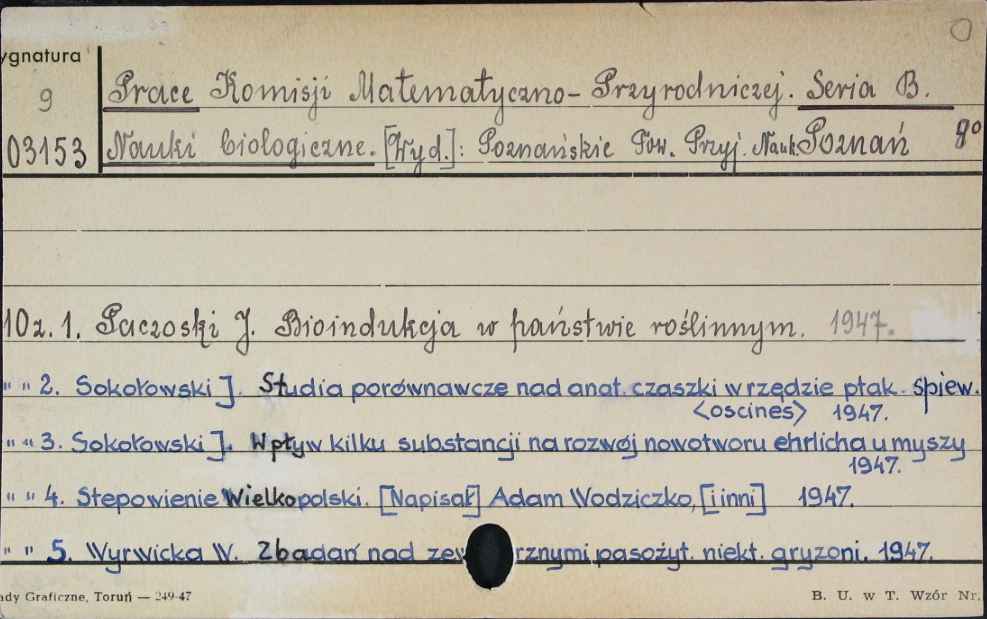 ygnatura
9 Prace Komisji Matematyczno-Przyrodniczej. Seria B.
03153 Nauki biologiczne. [Wyd.]: Poznańskie Tow. Przyj. Nauk. Poznań 8°
10z. 1. Paczoski J. Bioindukcja w państwie roślinnym. 1947.
" " 2. Sokołowski J. Studia porównawcze nad anat. czaszki w rzędzie ptak. śpiew.
<oscines> 1947.
" " 3. Sokołowski J. Wpływ kilku substancji na rozwój nowotworu ehrlicha u myszy
1947.
" " 4. Stepowienie Wielkopolski. [Napisał] Adam Wodziczko, [i inni] 1947.
" " 5. Wyrwicka W. Z badań nad zew rznymi pasożyt. niekt. gryzoni. 1947.
ady Graficzne, Toruń — 249-47 B. U. w T. Wzór Nr.